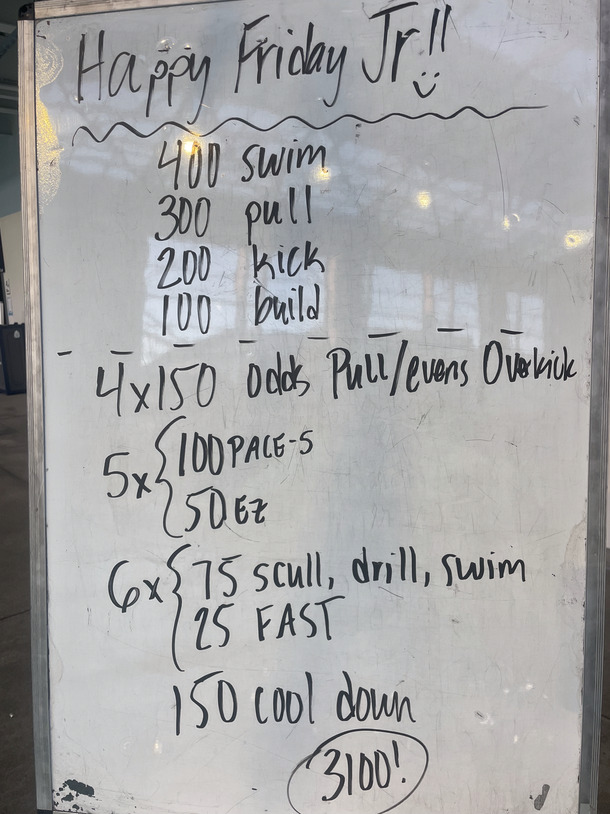 Happy Friday Jr!!
400 swim
300 pull
200 kick
100 build
4x150 odds Pull/evens Overkick
5x{100 PACE-5
50 EZ
6x{75 scull, drill, swim
25 FAST
150 cool down
3100!